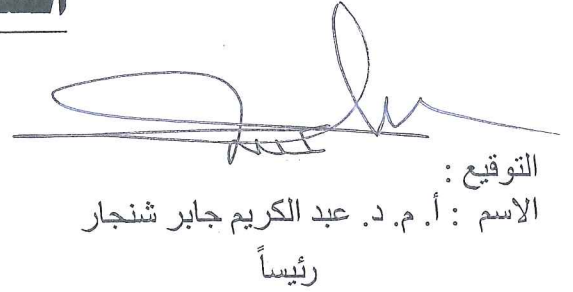 التوقيع :
الاسم : أ. م. د. عبد الكريم جابر شنجار
رئيساً